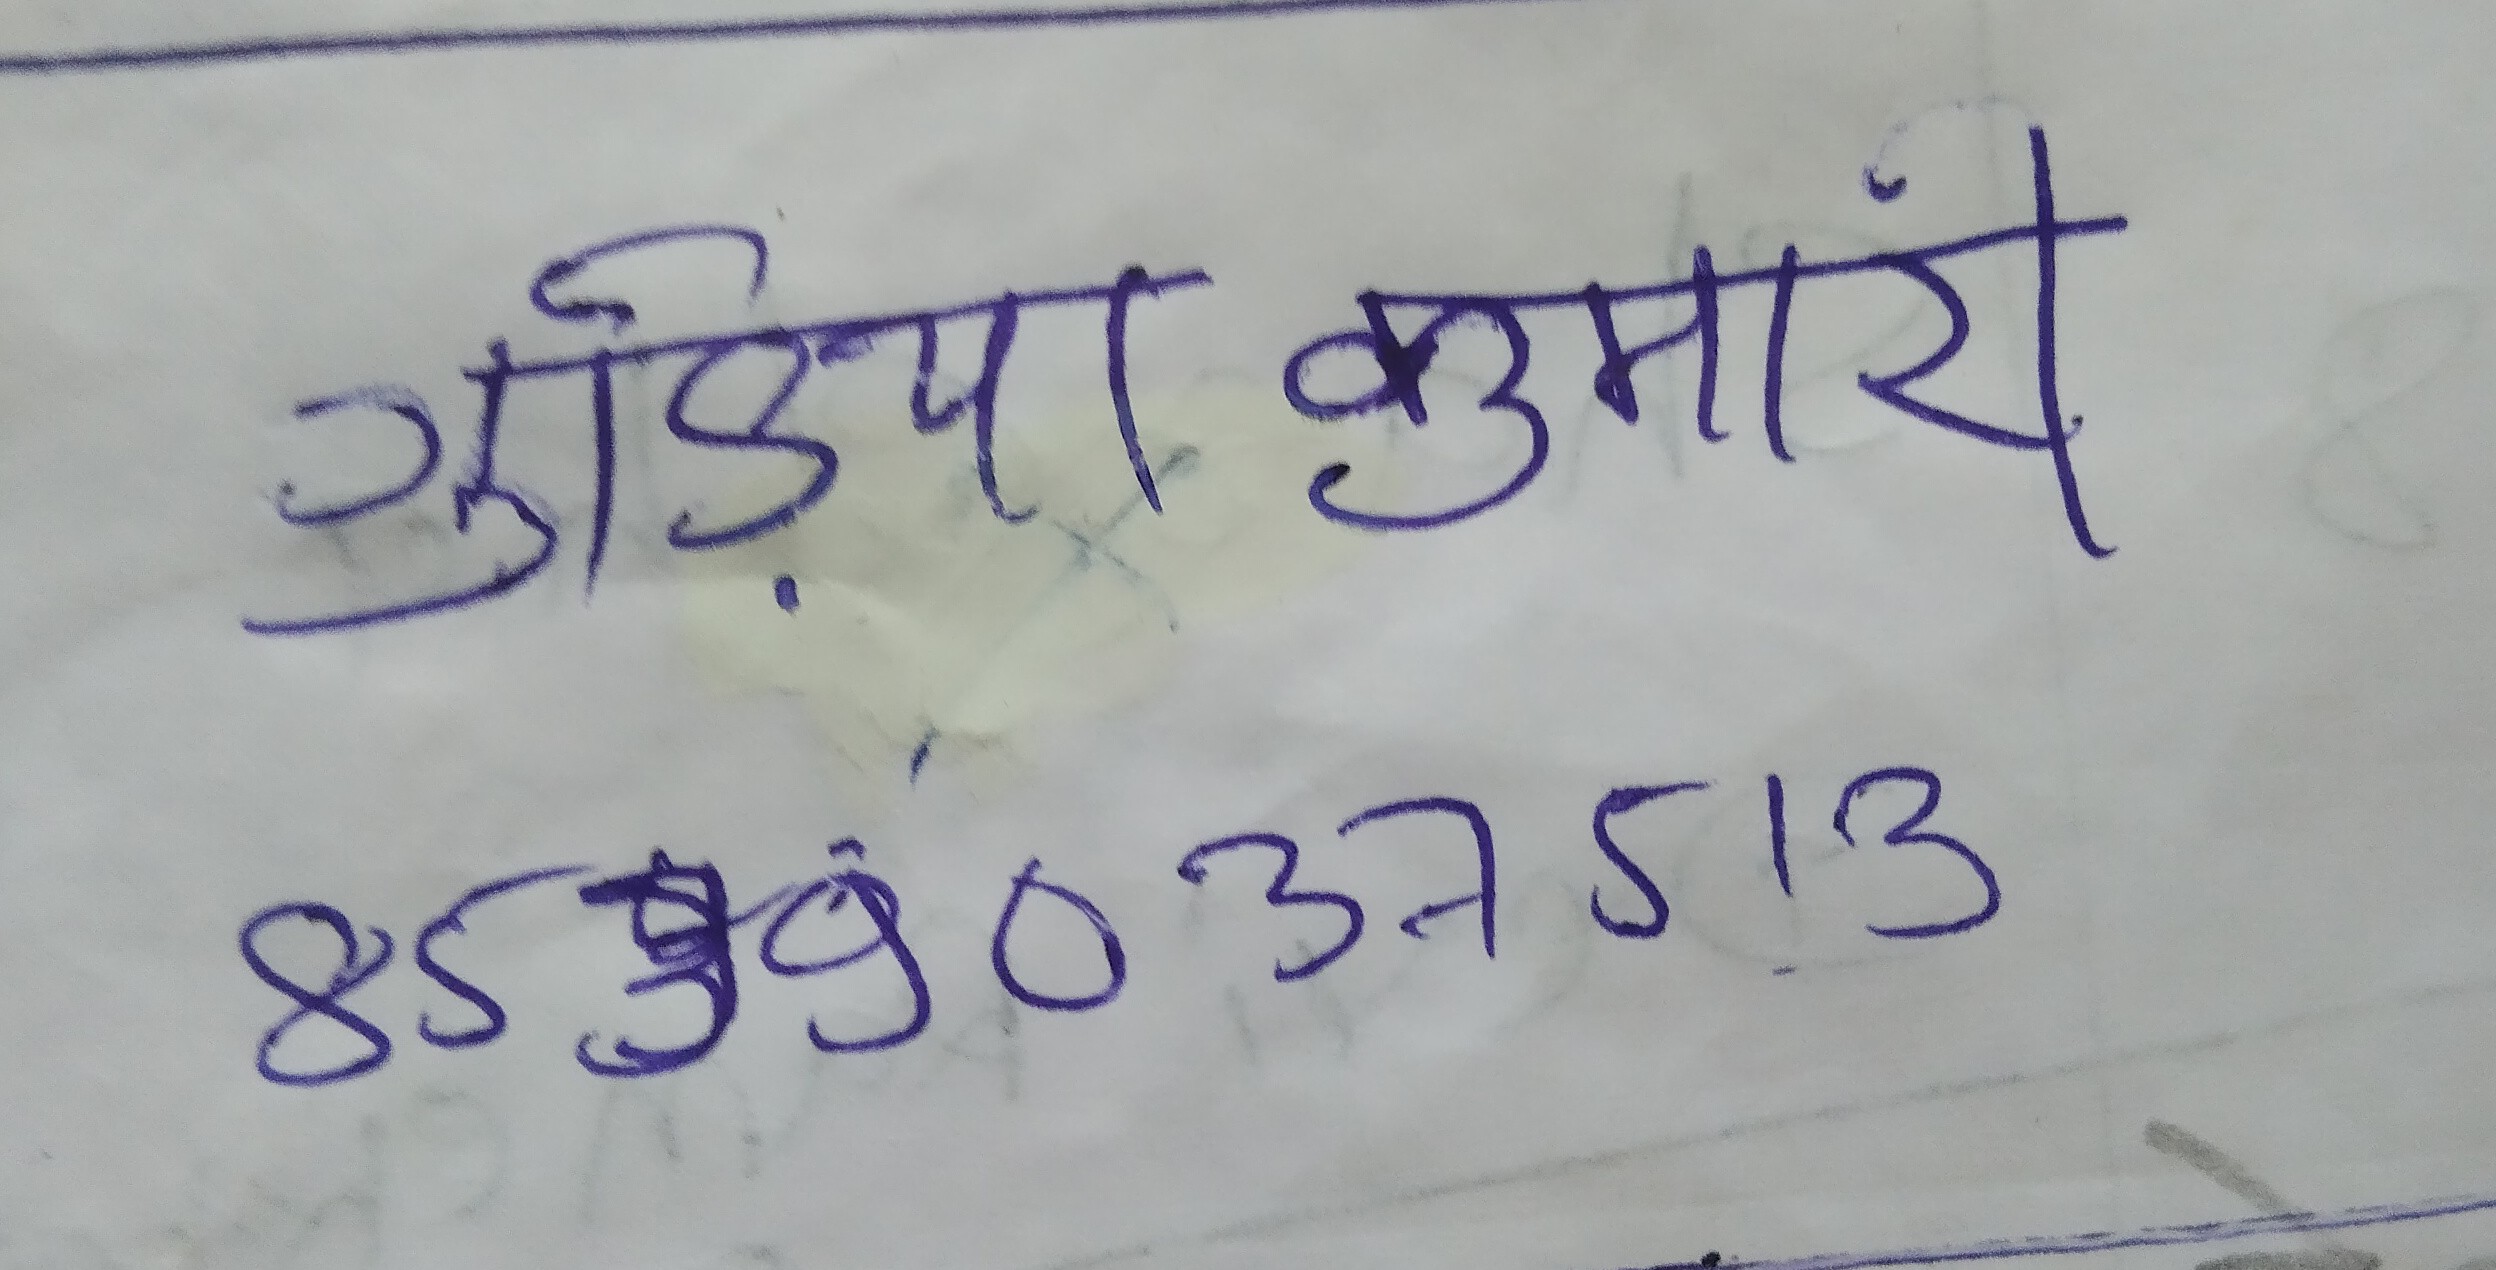 गुड़िया कुमारी
8539037513